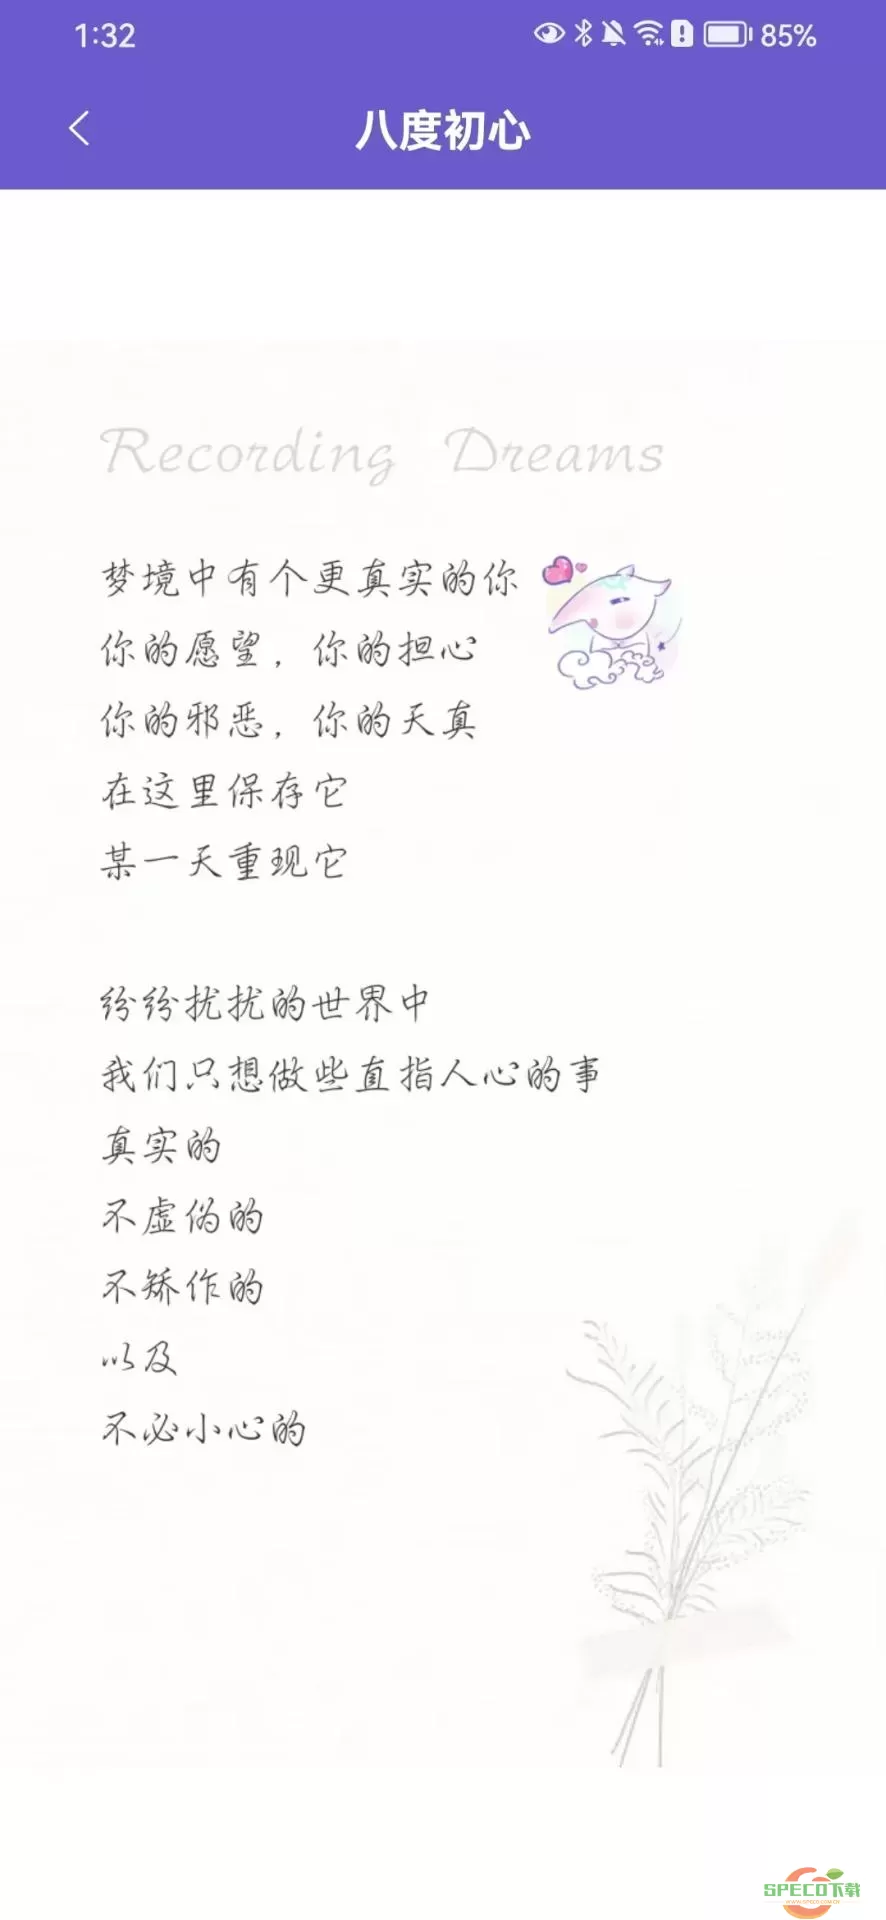 1:32
85%
八度初心
Recording Dreams
梦境中有个更真实的你
你的愿望，你的担心
你的邪恶，你的天真
在这里保存它
某一天重现它
纷纷扰扰的世界中
我们只想做些直指人心的事
真实的
不虚伪的
不矫作的
以及
不必小心的
SPECO下载
WWW.SPECO.COM.CN